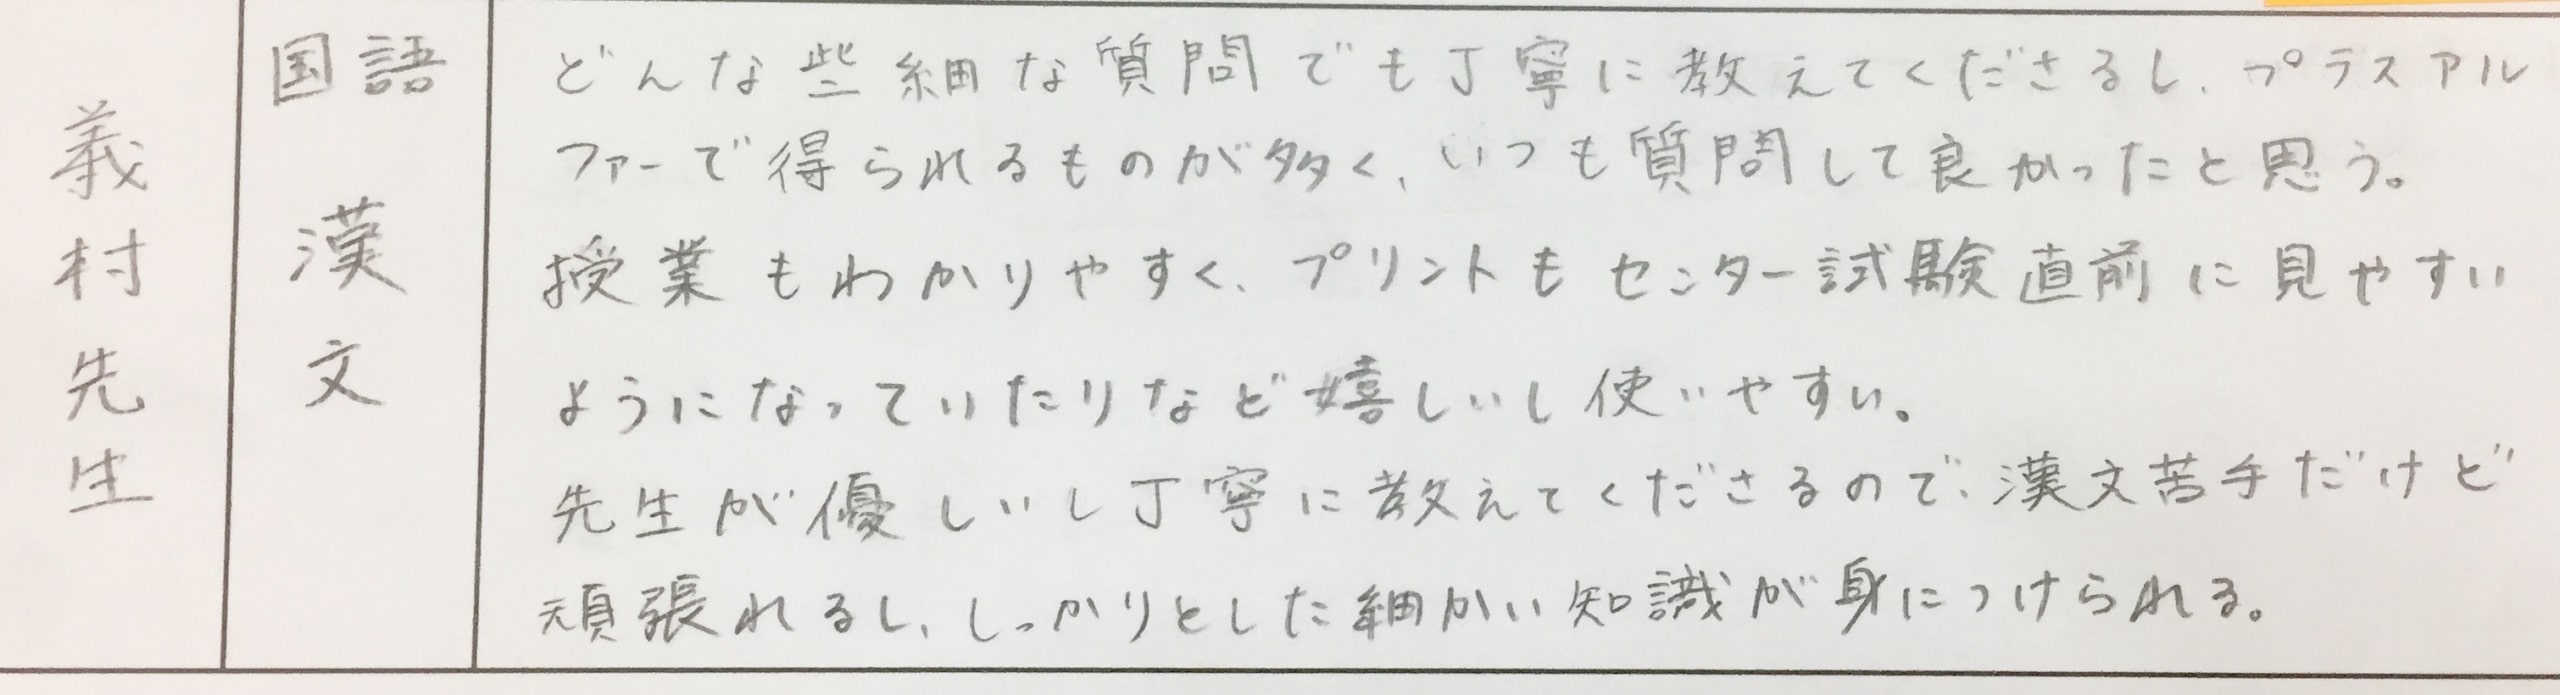 義村先生
国語
漢文
どんな些細な質問でも丁寧に教えてくださるし、プラスアル
ファーで得られるものが多く、いつも質問して良かったと思う。
授業もわかりやすく、プリントもセンター試験直前に見やすい
ようになっていたりなど嬉しいし使いやすい。
先生が優しいし丁寧に教えてくださるので、漢文苦手だけど
頑張れるし、しっかりとした細かい知識が身につけられる。